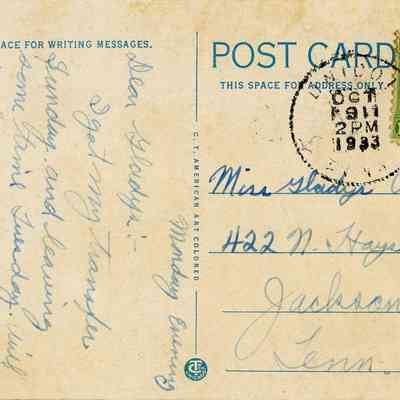 ACE FOR WRITING MESSAGES.
Monday Evening
Dear Gladys:-
I got my transfer
Sunday and leaving
some time Tuesday. Will
C. T. AMERICAN ART COLORED
POST CARD
THIS SPACE FOR ADDRESS ONLY.
OCT
11
2 PM
1933
Miss Gladys
422 N. Hays
Jackson
Tenn.